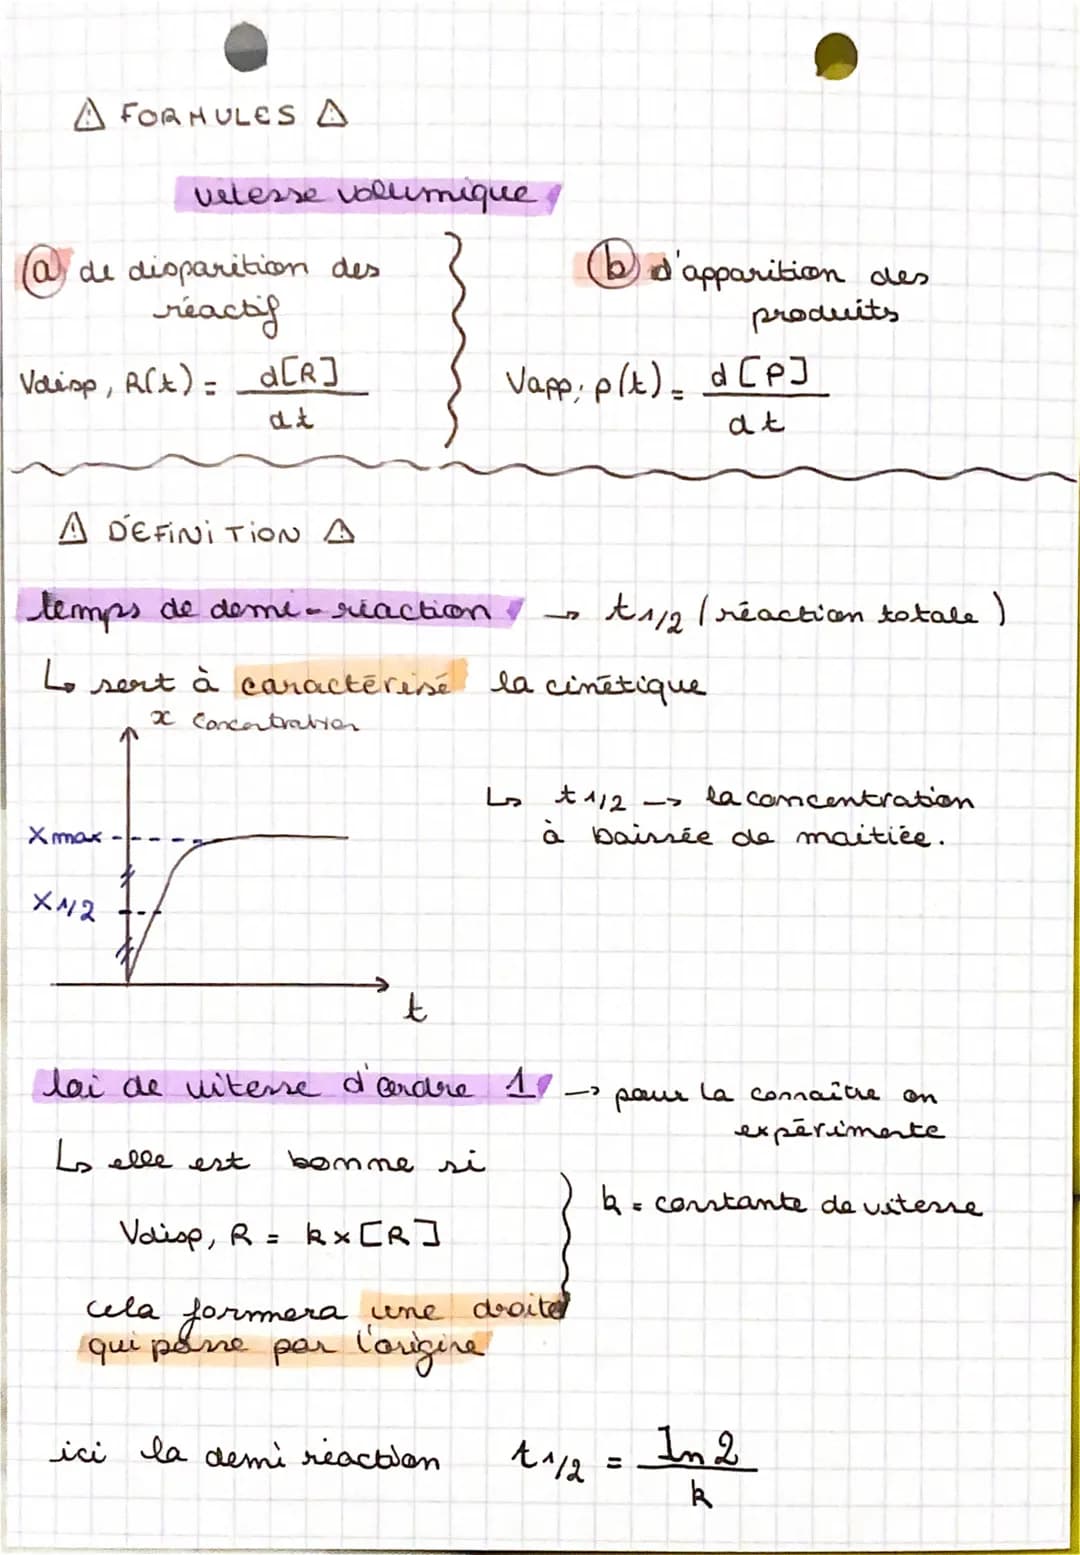 ⚠ FORMULES ⚠
vitesse volumique
(a) de disparition des
réactif
Vdisp, R(t) = d[R]
dt
(b) d'apparition des
produits
Vapp, p(t) = d[P]
dt
⚠ DÉFINITION ⚠
temps de demi-réaction → t1/2 (réaction totale)
↳ sert à caractérisé la cinétique
x Concentration
Xmax
X1/2
t
↳ t1/2 → la concentration
à baissée de moitiée.
loi de vitesse d'ordre 1 → pour la connaître on
expérimente
↳ elle est bonne si
Vdisp, R = k×[R]
k = constante de vitesse
cela formera une droite
qui passe par l'origine
ici la demi réaction t1/2 = ln2
k